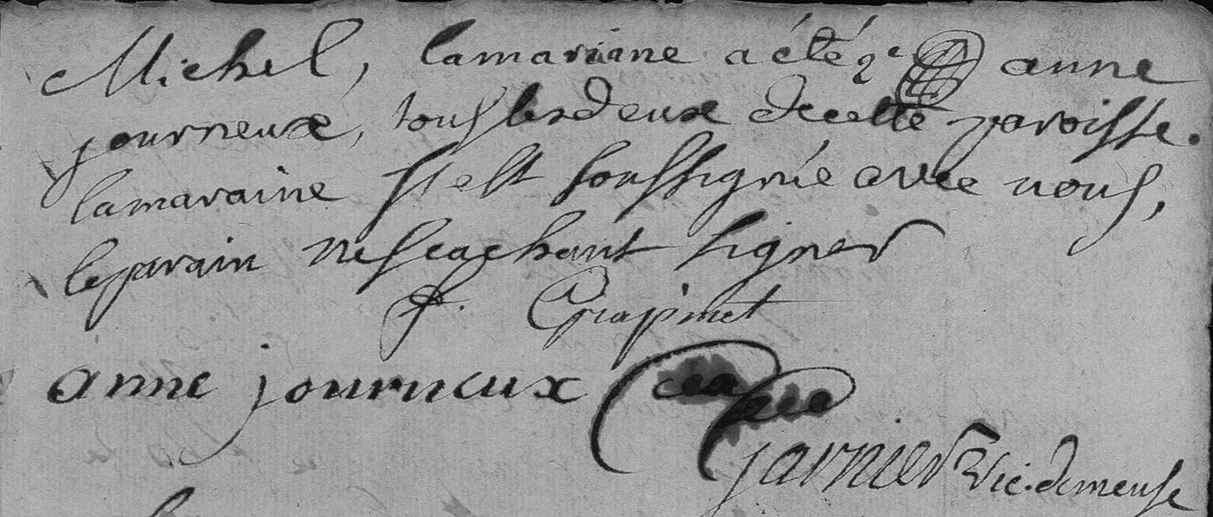 Michel, lamaraine a été anne
journeux, tous les deux de cette paroisse.
lamaraine s'est soussignée avec nous,
leparain ne scachant signer
anne journeux
garnier Vic. demeuse